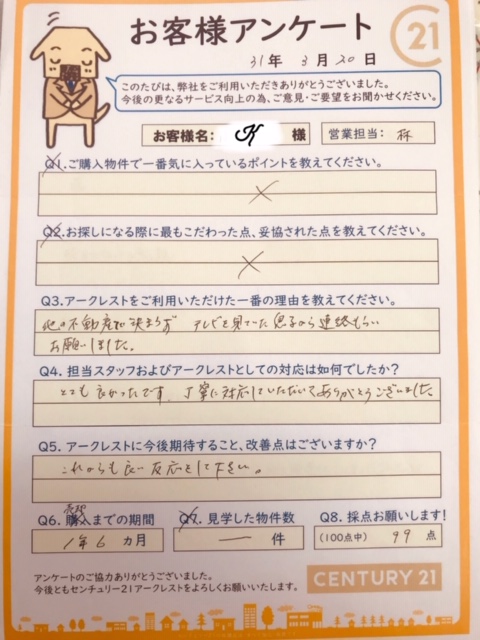 お客様アンケート
21
31年 3月20日
このたびは、弊社をご利用いただきありがとうございました。
今後の更なるサービス向上の為、ご意見・ご要望をお聞かせください。
お客様名: K 様 営業担当: 林
Q1.ご購入物件で一番気に入っているポイントを教えてください。
Q2.お探しになる際に最もこだわった点、妥協された点を教えてください。
Q3.アークレストをご利用いただけた一番の理由を教えてください。
他の不動産で決まらず テレビを見ていた息子から連絡もらい
お願いしました。
Q4. 担当スタッフおよびアークレストとしての対応は如何でしたか?
とても良かったです。丁寧に対応していただいてありがとうございました。
Q5. アークレストに今後期待すること、改善点はございますか?
これからも良い反応をして下さい。
売却
Q6. 購入までの期間 Q7. 見学した物件数 Q8. 採点お願いします!
1年6 カ月 ー 件 (100点中) 99 点
アンケートのご協力ありがとうございました。
今後ともセンチュリー21アークレストをよろしくお願いいたします。
CENTURY 21